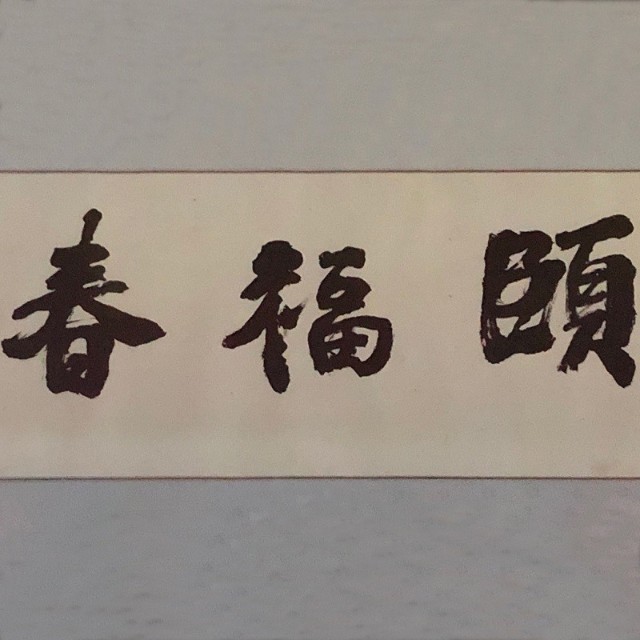 頤福春